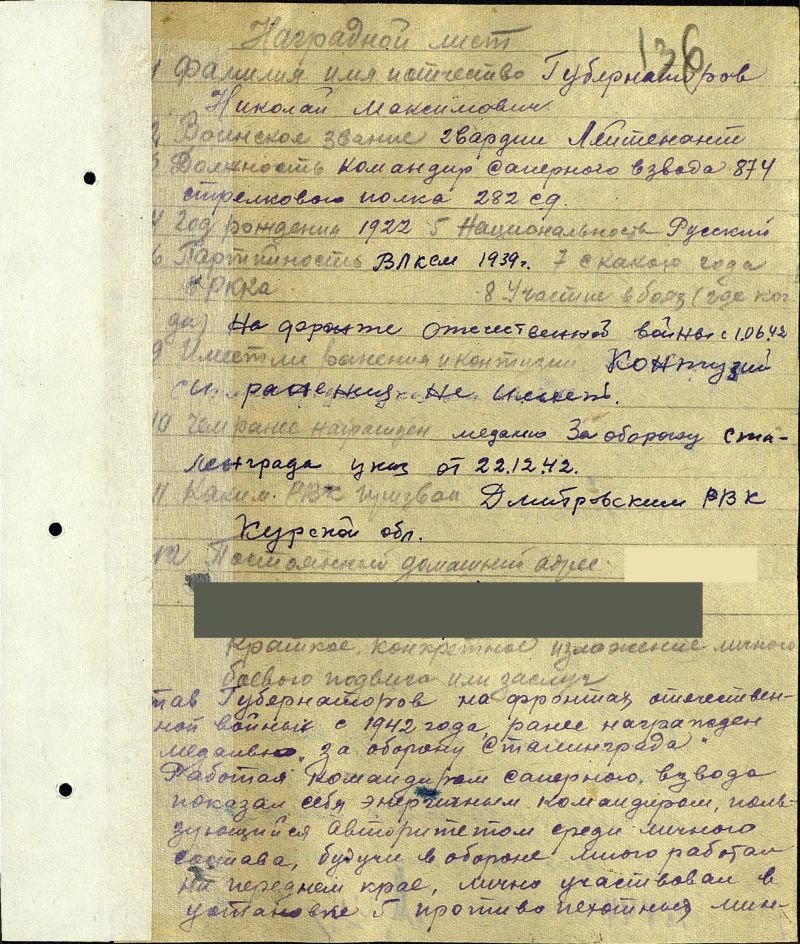 Наградной лист
136
1 Фамилия имя и отчество Губернаторов
Николай Максимович
2 Воинское звание гвардии Лейтенант
3 Должность командир саперного взвода 874
стрелкового полка 282 сд.
4 Год рождения 1922 5 Национальность Русский
6 Партийность ВЛКСМ 1939г. 7 с какого года
в РККА 8 Участие в боях (где ког
да) На фронте отечественной войны с 1.06.42
9 Имеет ли ранения и контузии Контузий
и ранения не имеет.
10 Чем ранее награжден медалью За оборону Ста-
ленграда указ от 22.12.42.
11 Каким РВК призван Дмитровским РВК
Курской обл.
12 Постоянный домашний адрес.
Краткое, конкретное изложение личного
боевого подвига или заслуг
тав Губернаторов на фронтах отечествен-
ной войны с 1942 года, ранее награжден
медалью "За оборону Сталинграда"
Работая командиром саперного взвода
показал себя энергичным командиром, поль-
зующийся авторитетом среди личного
состава, будучи в обороне много работал
на переднем крае, лично участвовал в
установке 5 противопехотных мин-